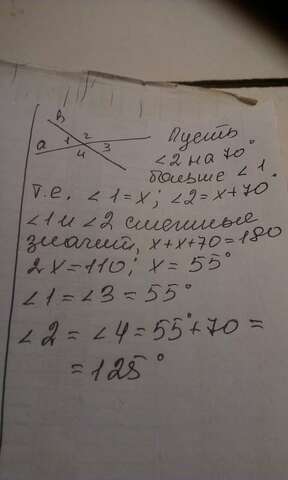 B
a 1 2 3
4
Пусть
∠2 на 70°
больше ∠1.
т.е. ∠1=x; ∠2=x+70°
∠1 и ∠2 смежные
значит, x+x+70=180
2x=110; x=55°
∠1=∠3=55°
∠2=∠4=55°+70=
=125°